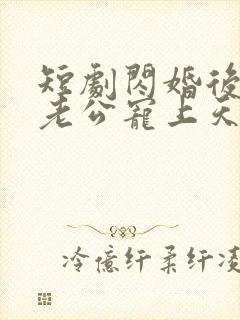 短劇閃婚後
老公寵上天
冷億纤柔纤凌